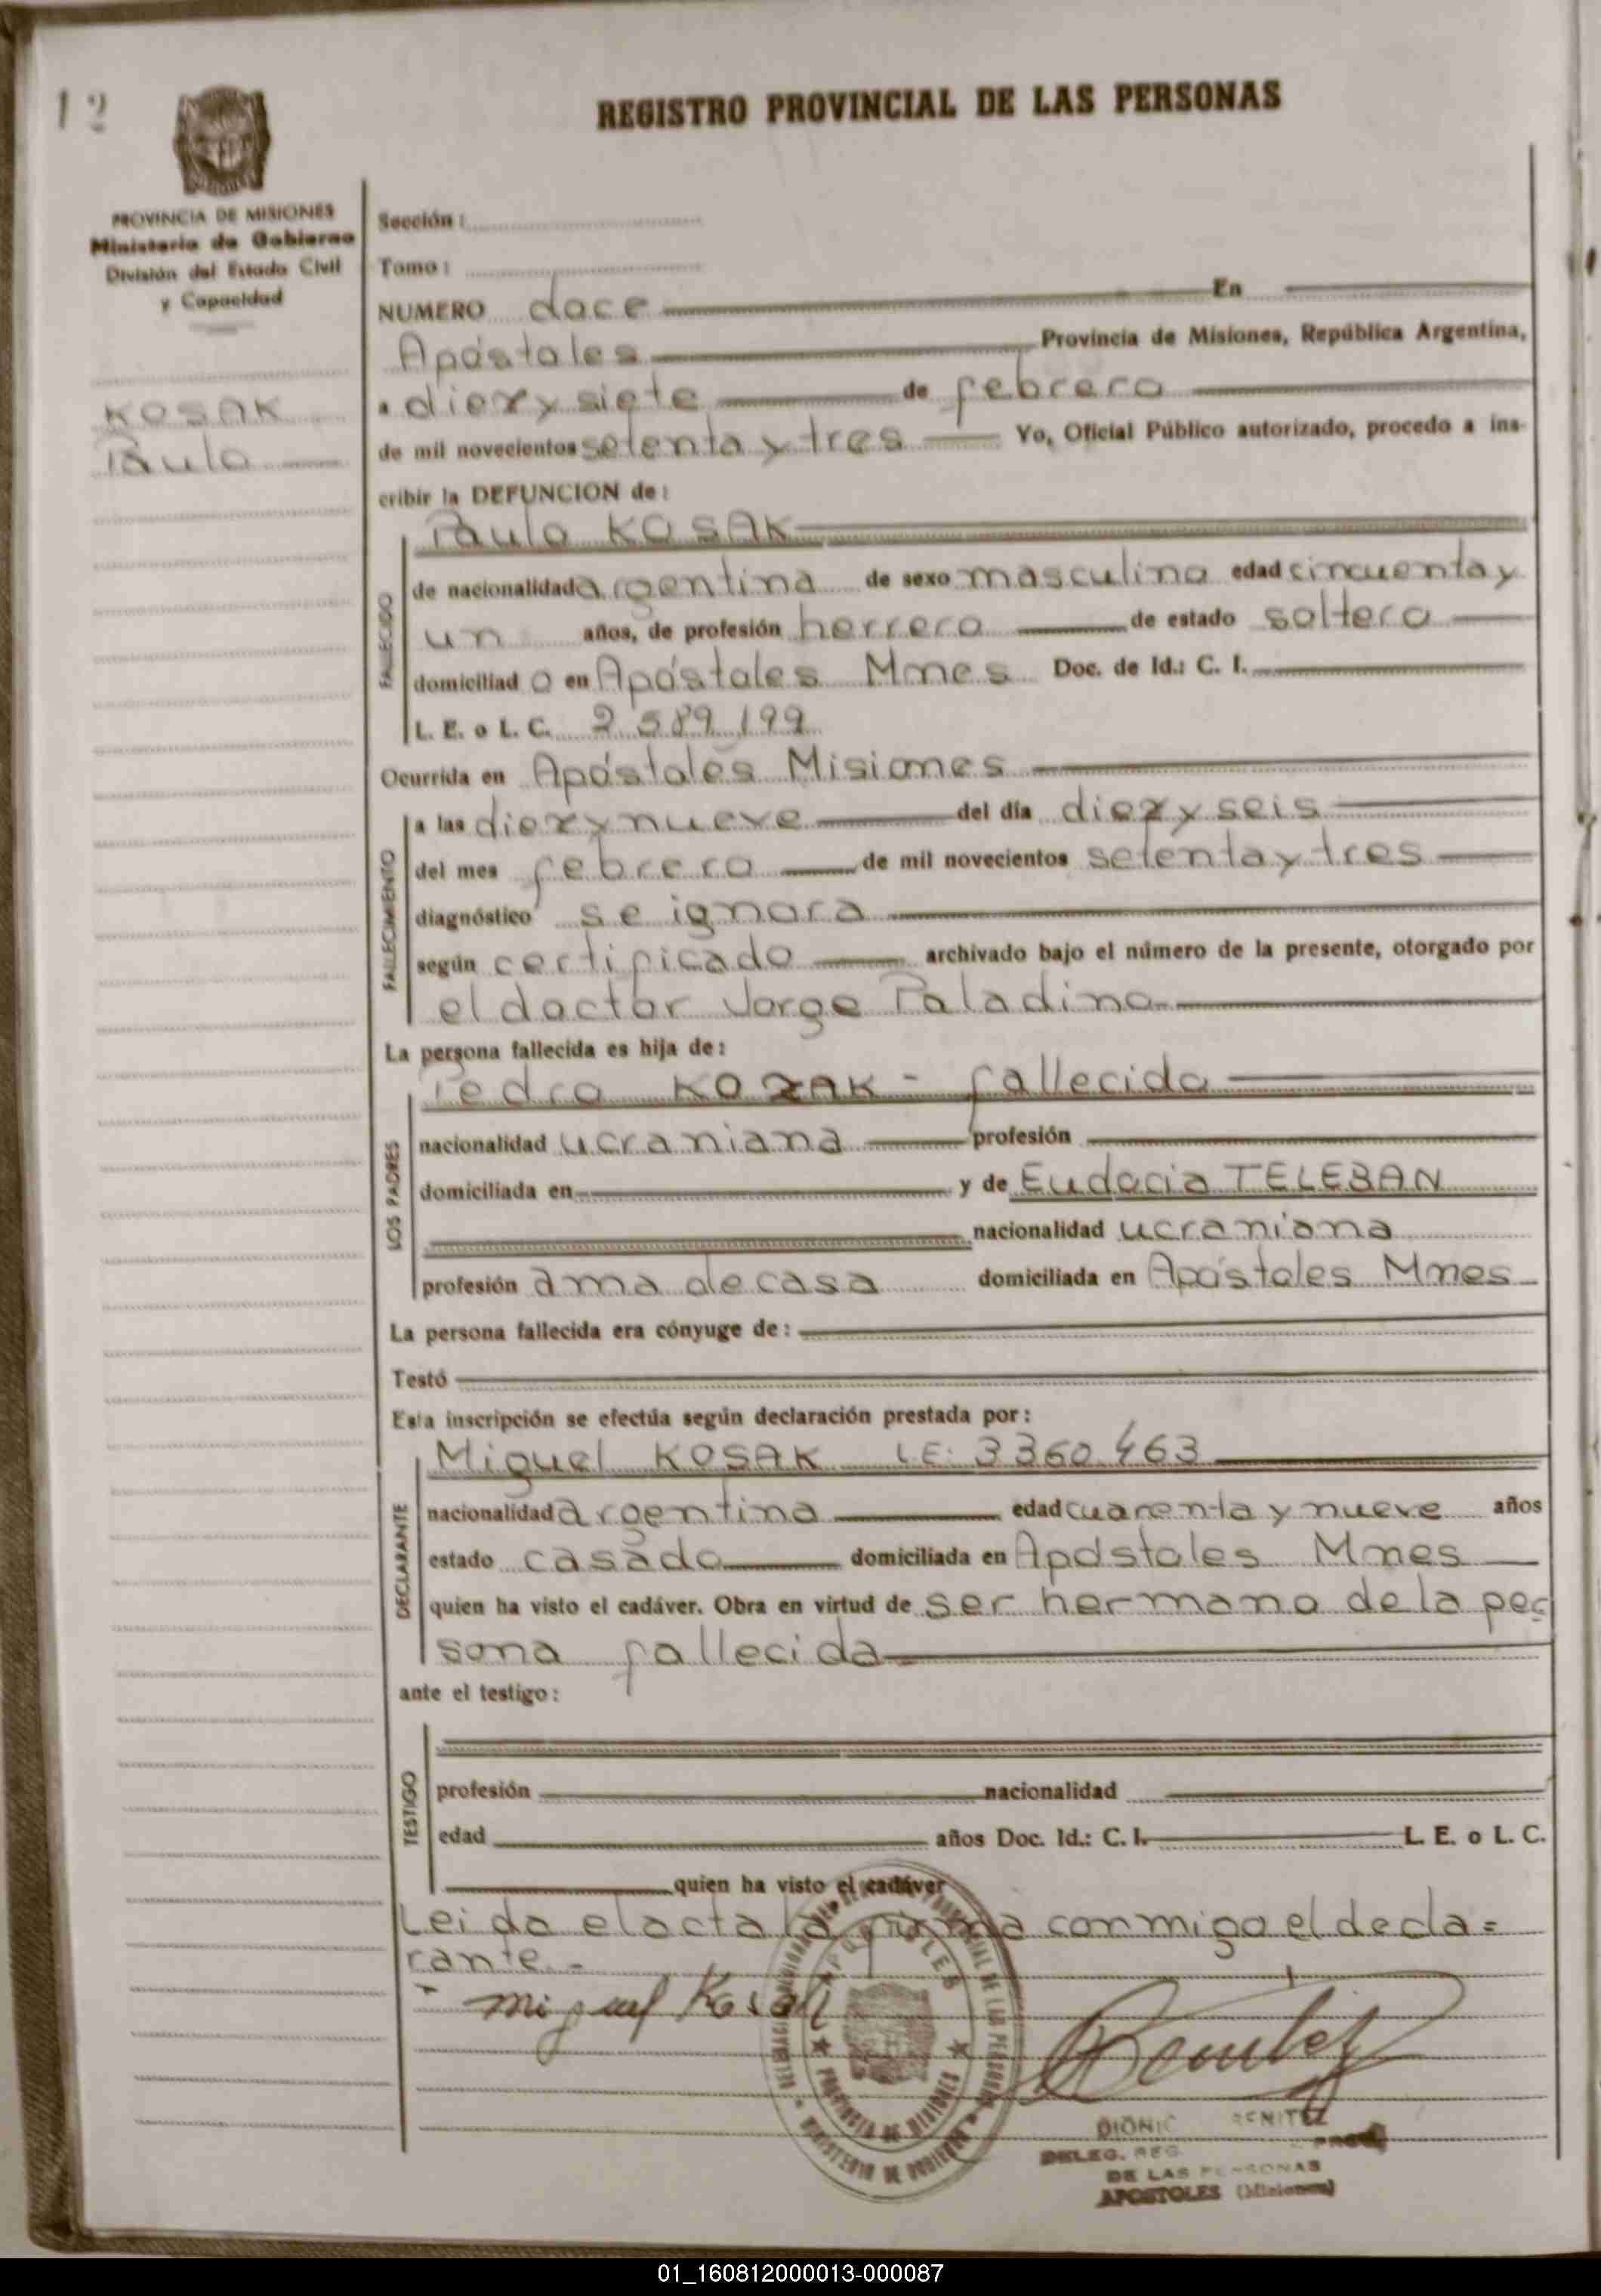 12
REGISTRO PROVINCIAL DE LAS PERSONAS
PROVINCIA DE MISIONES
Ministerio de Gobierno
División del Estado Civil
y Capacidad
KOSAK
Paulo
Sección :
Tomo :
NUMERO doce En
Apóstoles Provincia de Misiones, República Argentina,
a diez y siete de febrero
de mil novecientos setenta y tres Yo, Oficial Público autorizado, procedo a ins-
cribir la DEFUNCION de :
Paulo KOSAK
FALLECIDO
de nacionalidad argentina de sexo masculino edad cincuenta y
un años, de profesión herrero de estado soltero
domiciliad o en Apóstoles Mnes Doc. de Id.: C. I.
L. E. o L. C. 2.589.199
Ocurrida en Apóstoles Misiones
FALLECIMIENTO
a las diez y nueve del día diez y seis
del mes febrero de mil novecientos setenta y tres
diagnóstico se ignora
según certificado archivado bajo el número de la presente, otorgado por
el doctor Jorge Paladino
La persona fallecida es hija de :
Pedro KOZAK - fallecido
LOS PADRES
nacionalidad ucraniana profesión
domiciliada en y de Eudocia TELEBAN
nacionalidad ucraniana
profesión ama de casa domiciliada en Apóstoles Mnes
La persona fallecida era cónyuge de :
Testó
Esta inscripción se efectúa según declaración prestada por :
Miguel KOSAK LE: 3360.463
DECLARANTE
nacionalidad argentina edad cuarenta y nueve años
estado casado domiciliada en Apóstoles Mnes
quien ha visto el cadáver. Obra en virtud de ser hermano de la per
sona fallecida
ante el testigo :
TESTIGO
profesión nacionalidad
edad años Doc. Id.: C. I. L. E. o L. C.
quien ha visto el cadáver
Leido el acta la firma conmigo el decla=
rante.-
Miguel Kosak
APOSTOLES
PROVINCIA DE MISIONES
MINISTERIO DE GOBIERNO
BENITEZ
DELEG. REG.
DE LAS PERSONAS
APOSTOLES (Misiones)
01_160812000013-000087